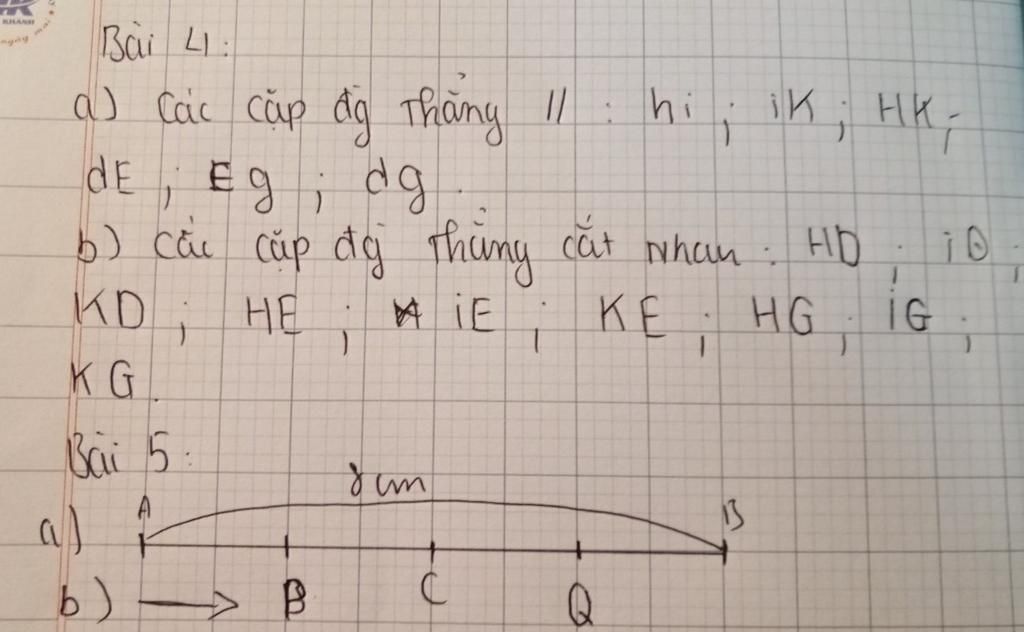 KHANH
ngày mai
Bài 4:
a) Các cặp đg Thẳng // : hi ; iK ; HK ;
dE ; Eg ; dg .
b) Các cặp đg Thẳng cắt nhau : HD ; iD ;
KD ; HE ; iE ; KE ; HG ; iG ;
KG .
Bài 5 :
8cm
a) A B
b) B C Q